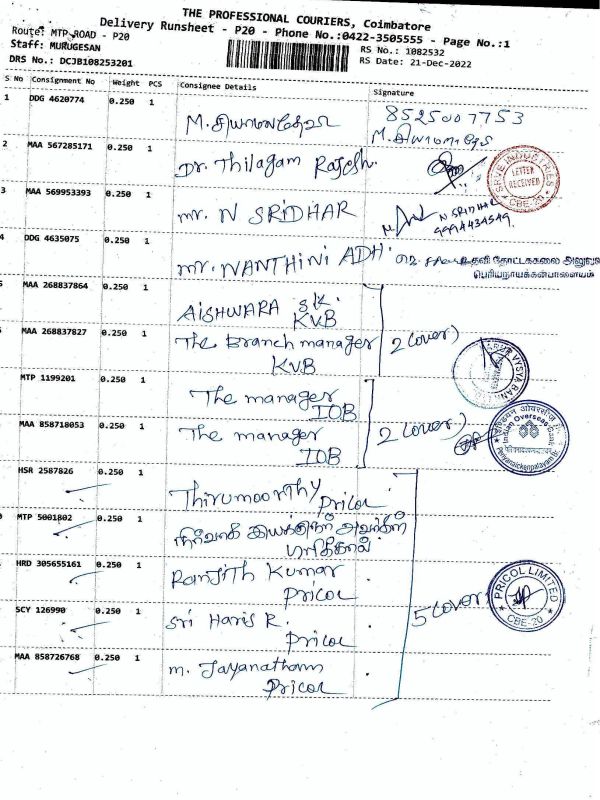 THE PROFESSIONAL COURIERS, Coimbatore
Delivery Runsheet - P20 - Phone No.:0422-3505555 - Page No.:1
Route: MTP ROAD - P20
RS No.: 1082532
Staff: MURUGESAN
RS Date: 21-Dec-2022
DRS No.: DCJB108253201
S No Consignment No Weight PCS Consignee Details Signature
1 DDG 4620774 0.250 1
8525007753
2 MAA 567285171 0.250 1 Dr. Thilagam Rajesh.
SRIE INDUSTRIES
LETTER RECEIVED
CBE-20
3 MAA 569953393 0.250 1 mr. N SRIDHAR N SRIDHAR
9994434549
4 DDG 4635075 0.250 1 mr. NANTHINI ADH. உதவி தோட்டக்கலை
பெரியநாயக்கன்பாளையம்
MAA 268837864 0.250 1 AISHWARA S.K.
KVB
MAA 268837827 0.250 1 The Branch manager 2 Cover)
KVB
VYSYA BAN
MTP 1199201 0.250 1 The manager
IOB
MAA 858718053 0.250 1 The manager 2 Cover)
IOB
इंडियन ओवरसीज़ बैंक
Indian Overseas Bank
HSR 2587826 0.250 1 Thirumoorthy
Pricol
MTP 5001802 0.250 1 நிர்வாக இயக்குநர் அவர்கள்
HRD 305655161 0.250 1 Ranjith Kumar
Pricol
5 Cover
PRICOL LIMITED
CBE-20
SCY 126990 0.250 1 Sri Haris R.
Pricol
MAA 858726768 0.250 1 m. Jayanatham
Pricol